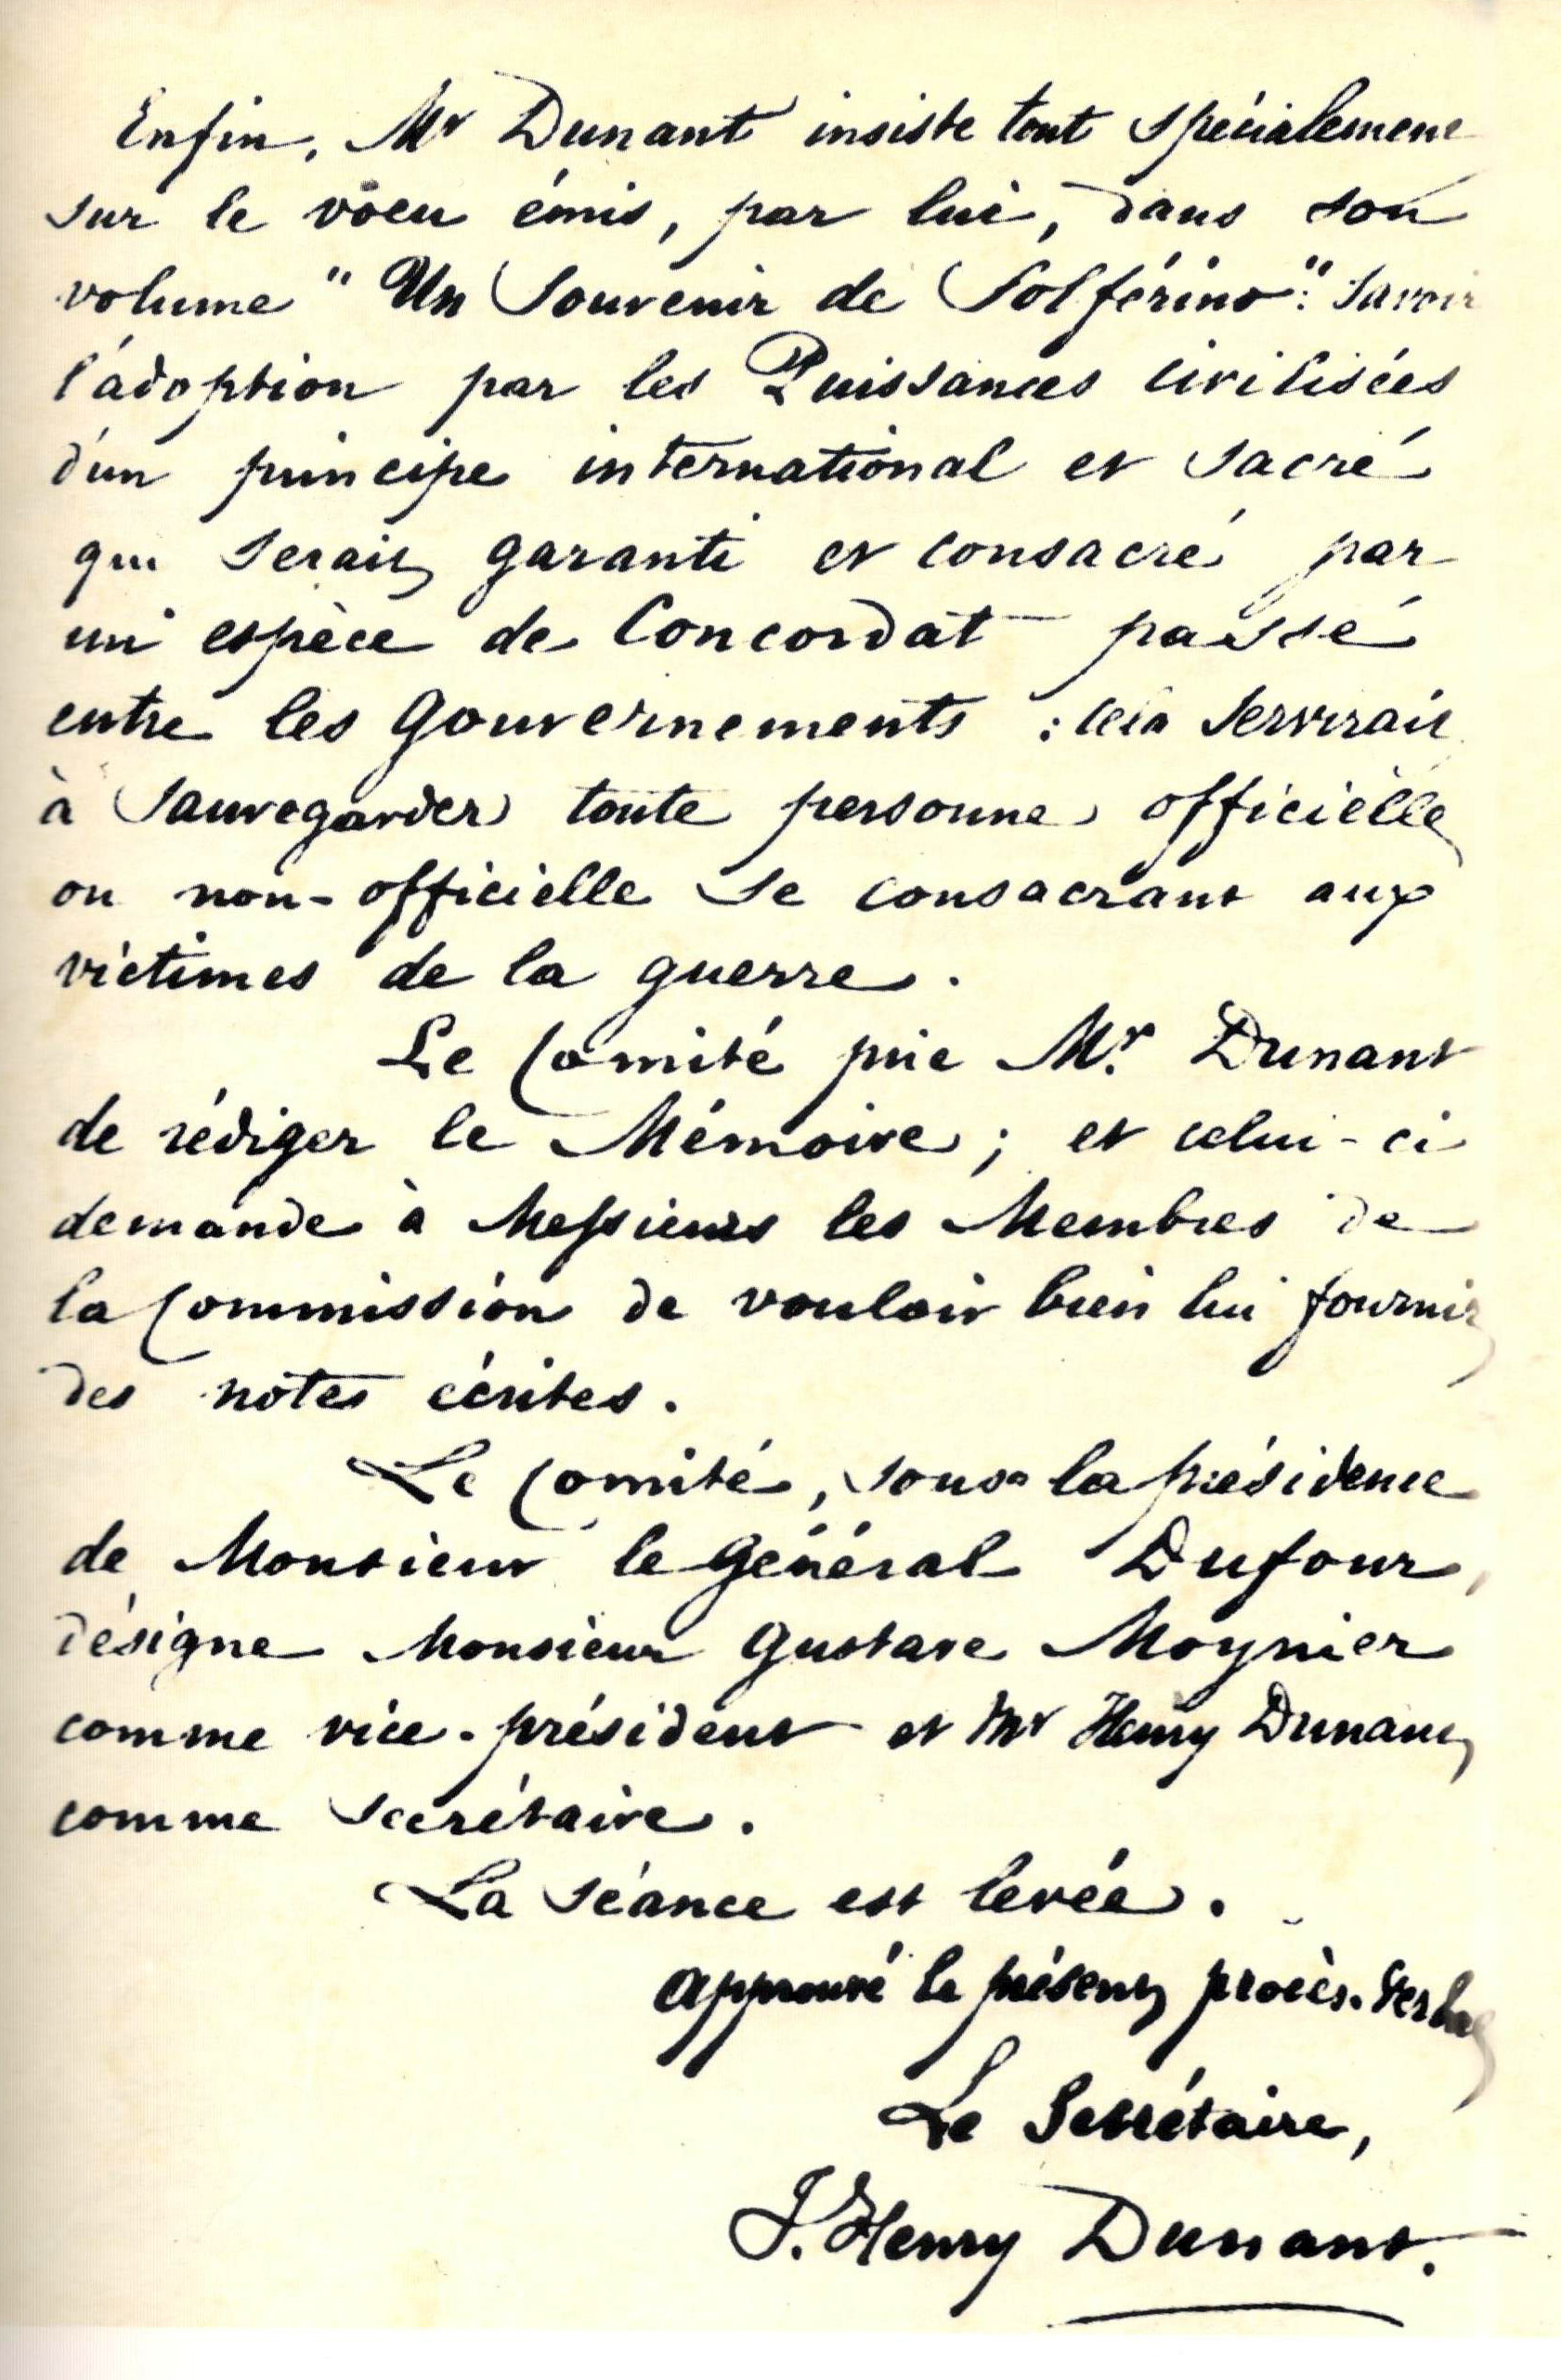 Enfin, Mr Dunant insiste tout spécialement
sur le vœu émis, par lui, dans son
volume "Un Souvenir de Solférino": Savoir
l'adoption par les Puissances civilisées
d'un principe international et sacré
qui serait garanti et consacré par
un espèce de Concordat passé
entre les Gouvernements : cela servirait
à sauvegarder toute personne officielle
ou non-officielle se consacrant aux
victimes de la guerre.
Le Comité prie Mr. Dunant
de rédiger le Mémoire; et celui-ci
demande à Messieurs les Membres de
la Commission de vouloir bien lui fournir
des notes écrites.
Le Comité, sous la présidence
de Monsieur le Général Dufour,
désigne Monsieur Gustave Moynier
comme vice-président et Mr Henry Dunant
comme Secrétaire.
La séance est levée.
approuvé le présent procès-verbal
Le Secrétaire,
J. Henry Dunant.